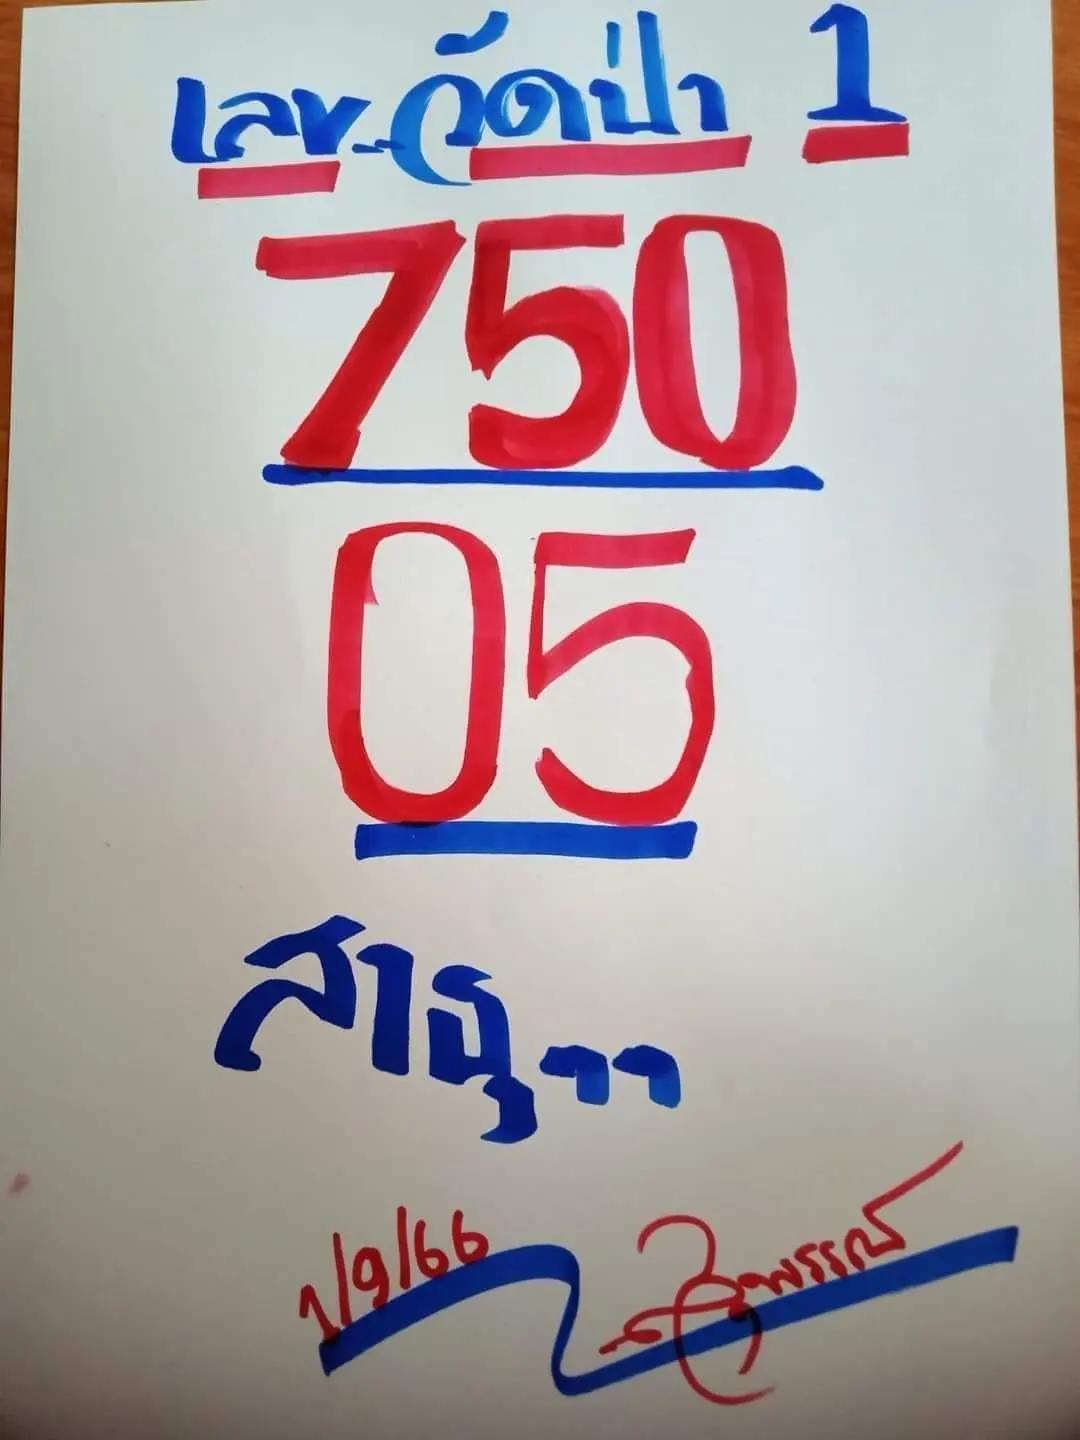 เลข..วัดป่า 1
750
05
สาธุ..
1/9/66